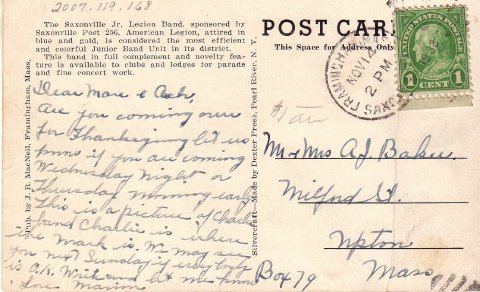 2007.119.168
The Saxonville Jr. Legion Band, sponsored by
Saxonville Post 256, American Legion, attired in
blue and gold, is considered the most efficient
and colorful Junior Band Unit in its district.
This band in full complement and novelty fea-
ture is available to clubs and lodges for parade
and fine concert work.
Dear Marie &
Are you coming over
for Thanksgiving let us
know if you are coming
Wednesday night or
Thursday morning early
This is a picture of Charlies
band Charlie is where
the mark is. We may see
you next Sunday if every body
is O.K. Write and let me know
Love Marion
Pub. by J. R. MacNeil, Framingham, Mass.
Silvercraft—Made by Dexter Press, Pearl River, N. Y.
POST CARD
This Space for Address Only
FRAMINGHAM
NOV 14
2 PM
UNITED STATES POSTAGE
1 CENT 1
Mr & Mrs A. J. Baker
Milford St.
Upton
Box 79 Mass